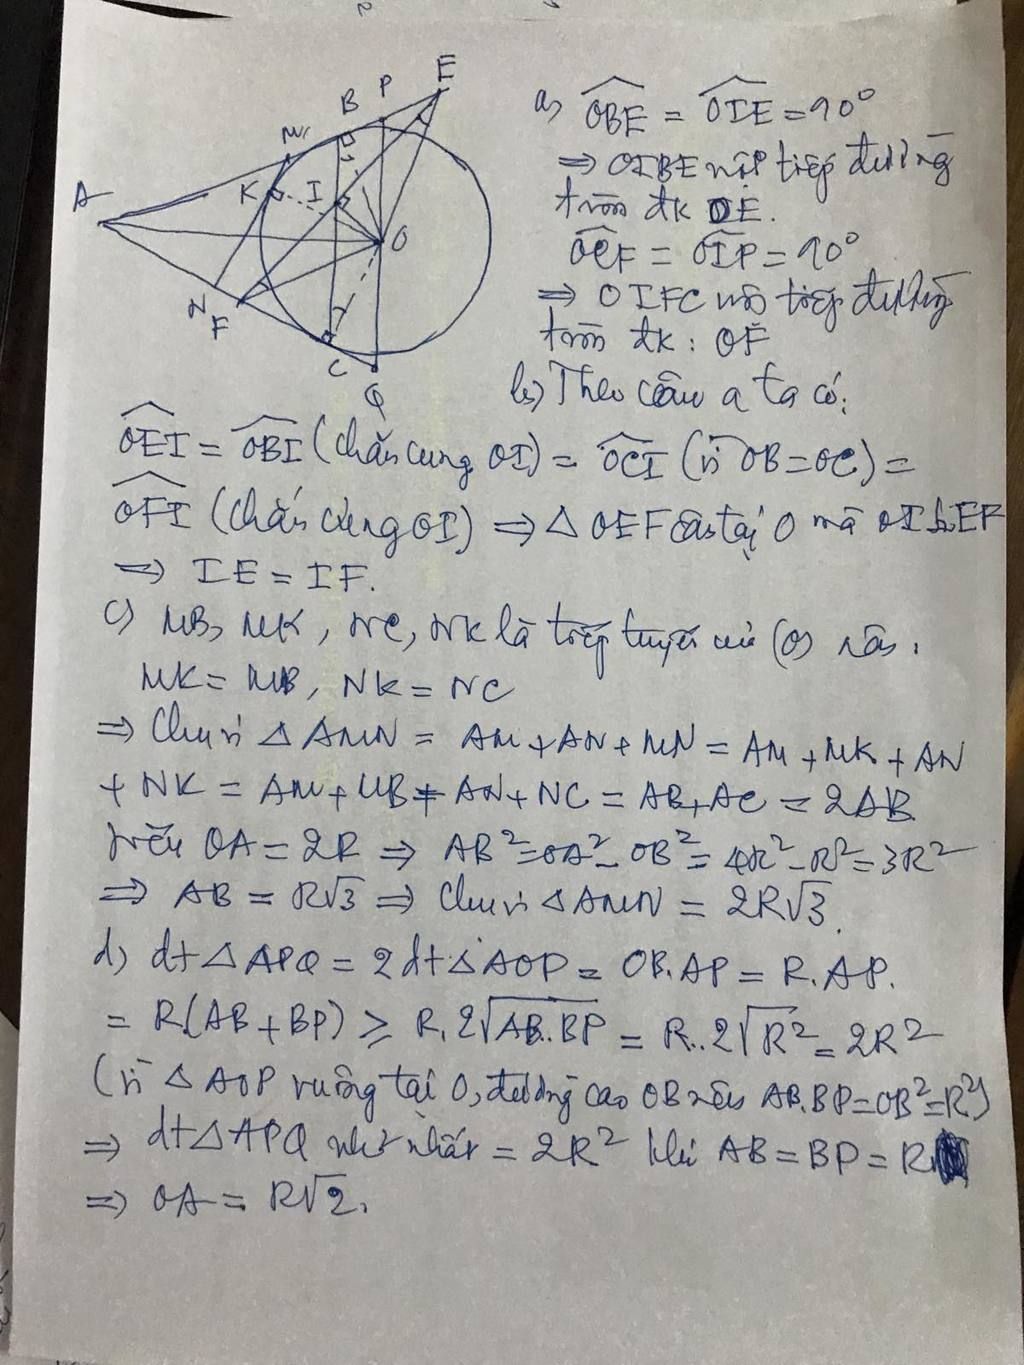 A
M
B
P
E
K
I
O
N
F
C
Q
a) OBE = OIE = 90°
⇒ OIBE nội tiếp đường
tròn đk OE.
OCF = OIP = 90°
⇒ OIFC nội tiếp đường
tròn đk: OF
b) Theo câu a ta có:
OEI = OBI (chắn cung OI) = OCI (vì OB = OC) =
OFI (chắn cung OI) ⇒ Δ OEF cân tại O mà OI ⊥ EF
⇒ IE = IF.
c) MB, MK, NC, NK là tiếp tuyến của (O) nên.
MK = MB, NK = NC
⇒ Chu vi Δ AMN = AM + AN + MN = AM + MK + AN
+ NK = AM + MB + AN + NC = AB + AC = 2AB
Nếu OA = 2R ⇒ AB² = OA² - OB² = 4R² - R² = 3R²
⇒ AB = R√3 ⇒ Chu vi Δ AMN = 2R√3.
d) dt Δ APQ = 2 dt Δ AOP = OB.AP = R.AP.
= R.(AB + BP) ≥ R.2√AB.BP = R.2√R² = 2R²
(vì Δ AOP vuông tại O, đường cao OB nên AB.BP = OB² = R²)
⇒ dt Δ APQ nhỏ nhất = 2R² khi AB = BP = R
⇒ OA = R√2.